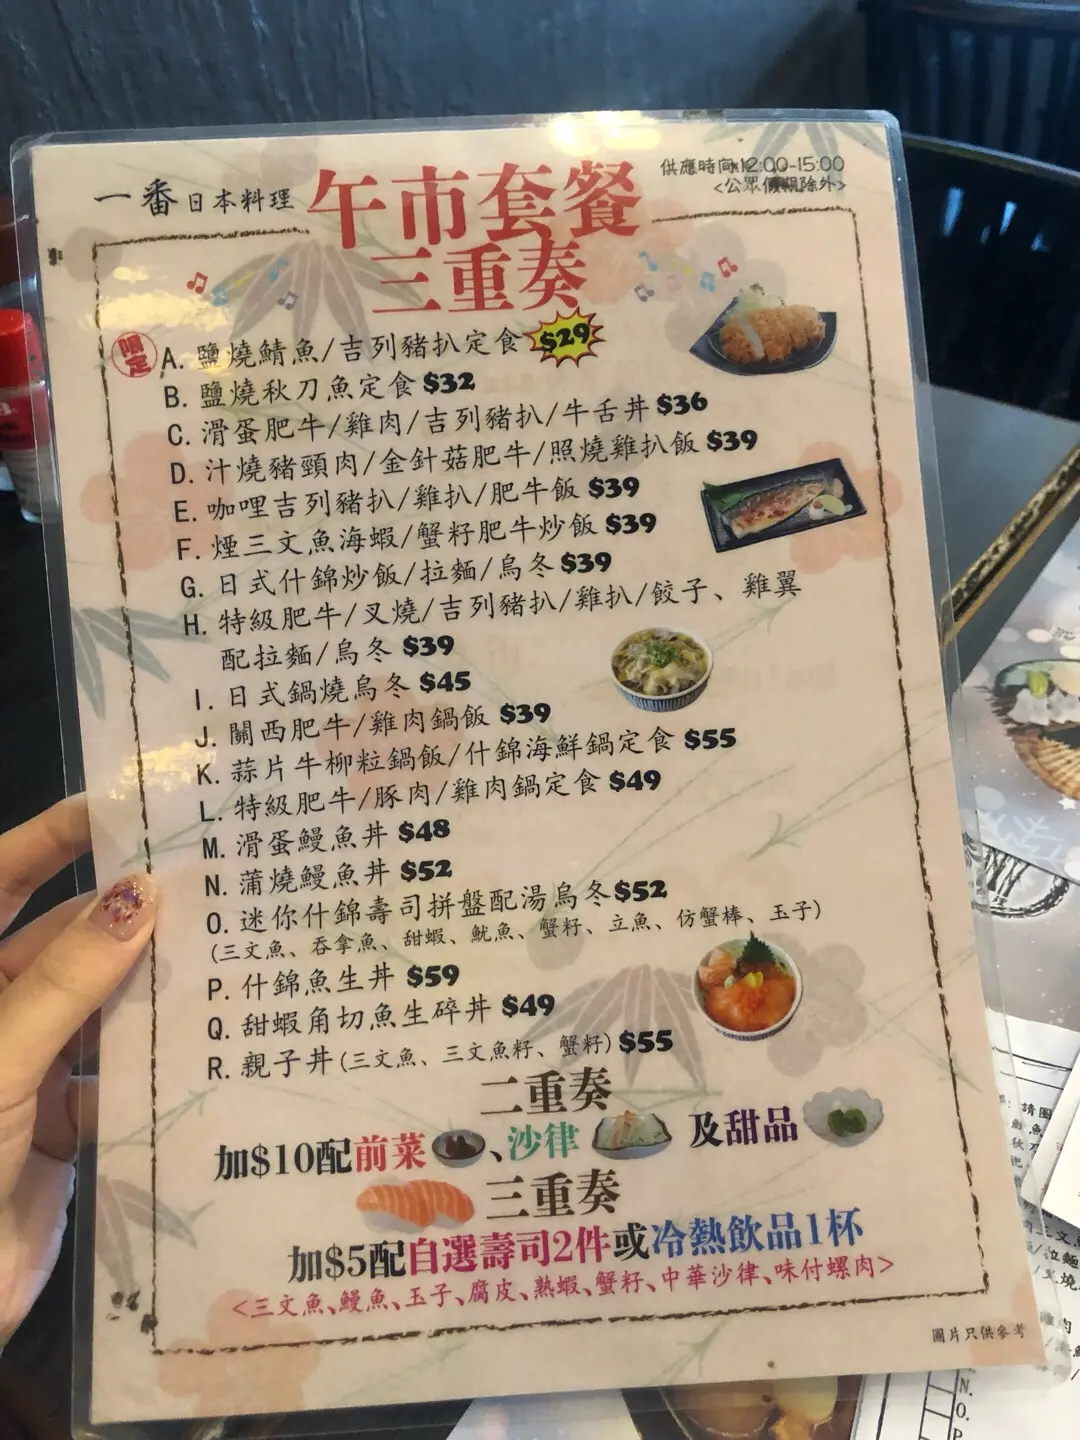 一番日本料理
午市套餐
三重奏
供應時間:12:00-15:00
<公眾假期除外>
限定
A. 鹽燒鯖魚/吉列豬扒定食 $29
B. 鹽燒秋刀魚定食 $32
C. 滑蛋肥牛/雞肉/吉列豬扒/牛舌丼 $36
D. 汁燒豬頸肉/金針菇肥牛/照燒雞扒飯 $39
E. 咖哩吉列豬扒/雞扒/肥牛飯 $39
F. 煙三文魚海蝦/蟹籽肥牛炒飯 $39
G. 日式什錦炒飯/拉麵/烏冬 $39
H. 特級肥牛/叉燒/吉列豬扒/雞扒/餃子、雞翼
配拉麵/烏冬 $39
I. 日式鍋燒烏冬 $45
J. 關西肥牛/雞肉鍋飯 $39
K. 蒜片牛柳粒鍋飯/什錦海鮮鍋定食 $55
L. 特級肥牛/豚肉/雞肉鍋定食 $49
M. 滑蛋鰻魚丼 $48
N. 蒲燒鰻魚丼 $52
O. 迷你什錦壽司拼盤配湯烏冬 $52
(三文魚、吞拿魚、甜蝦、魷魚、蟹籽、立魚、仿蟹棒、玉子)
P. 什錦魚生丼 $59
Q. 甜蝦角切魚生碎丼 $49
R. 親子丼(三文魚、三文魚籽、蟹籽) $55
二重奏
加$10配前菜、沙律 及甜品
三重奏
加$5配自選壽司2件或冷熱飲品1杯
<三文魚、鰻魚、玉子、腐皮、熟蝦、蟹籽、中華沙律、味付螺肉>
圖片只供參考
請圈
N.
O.
P